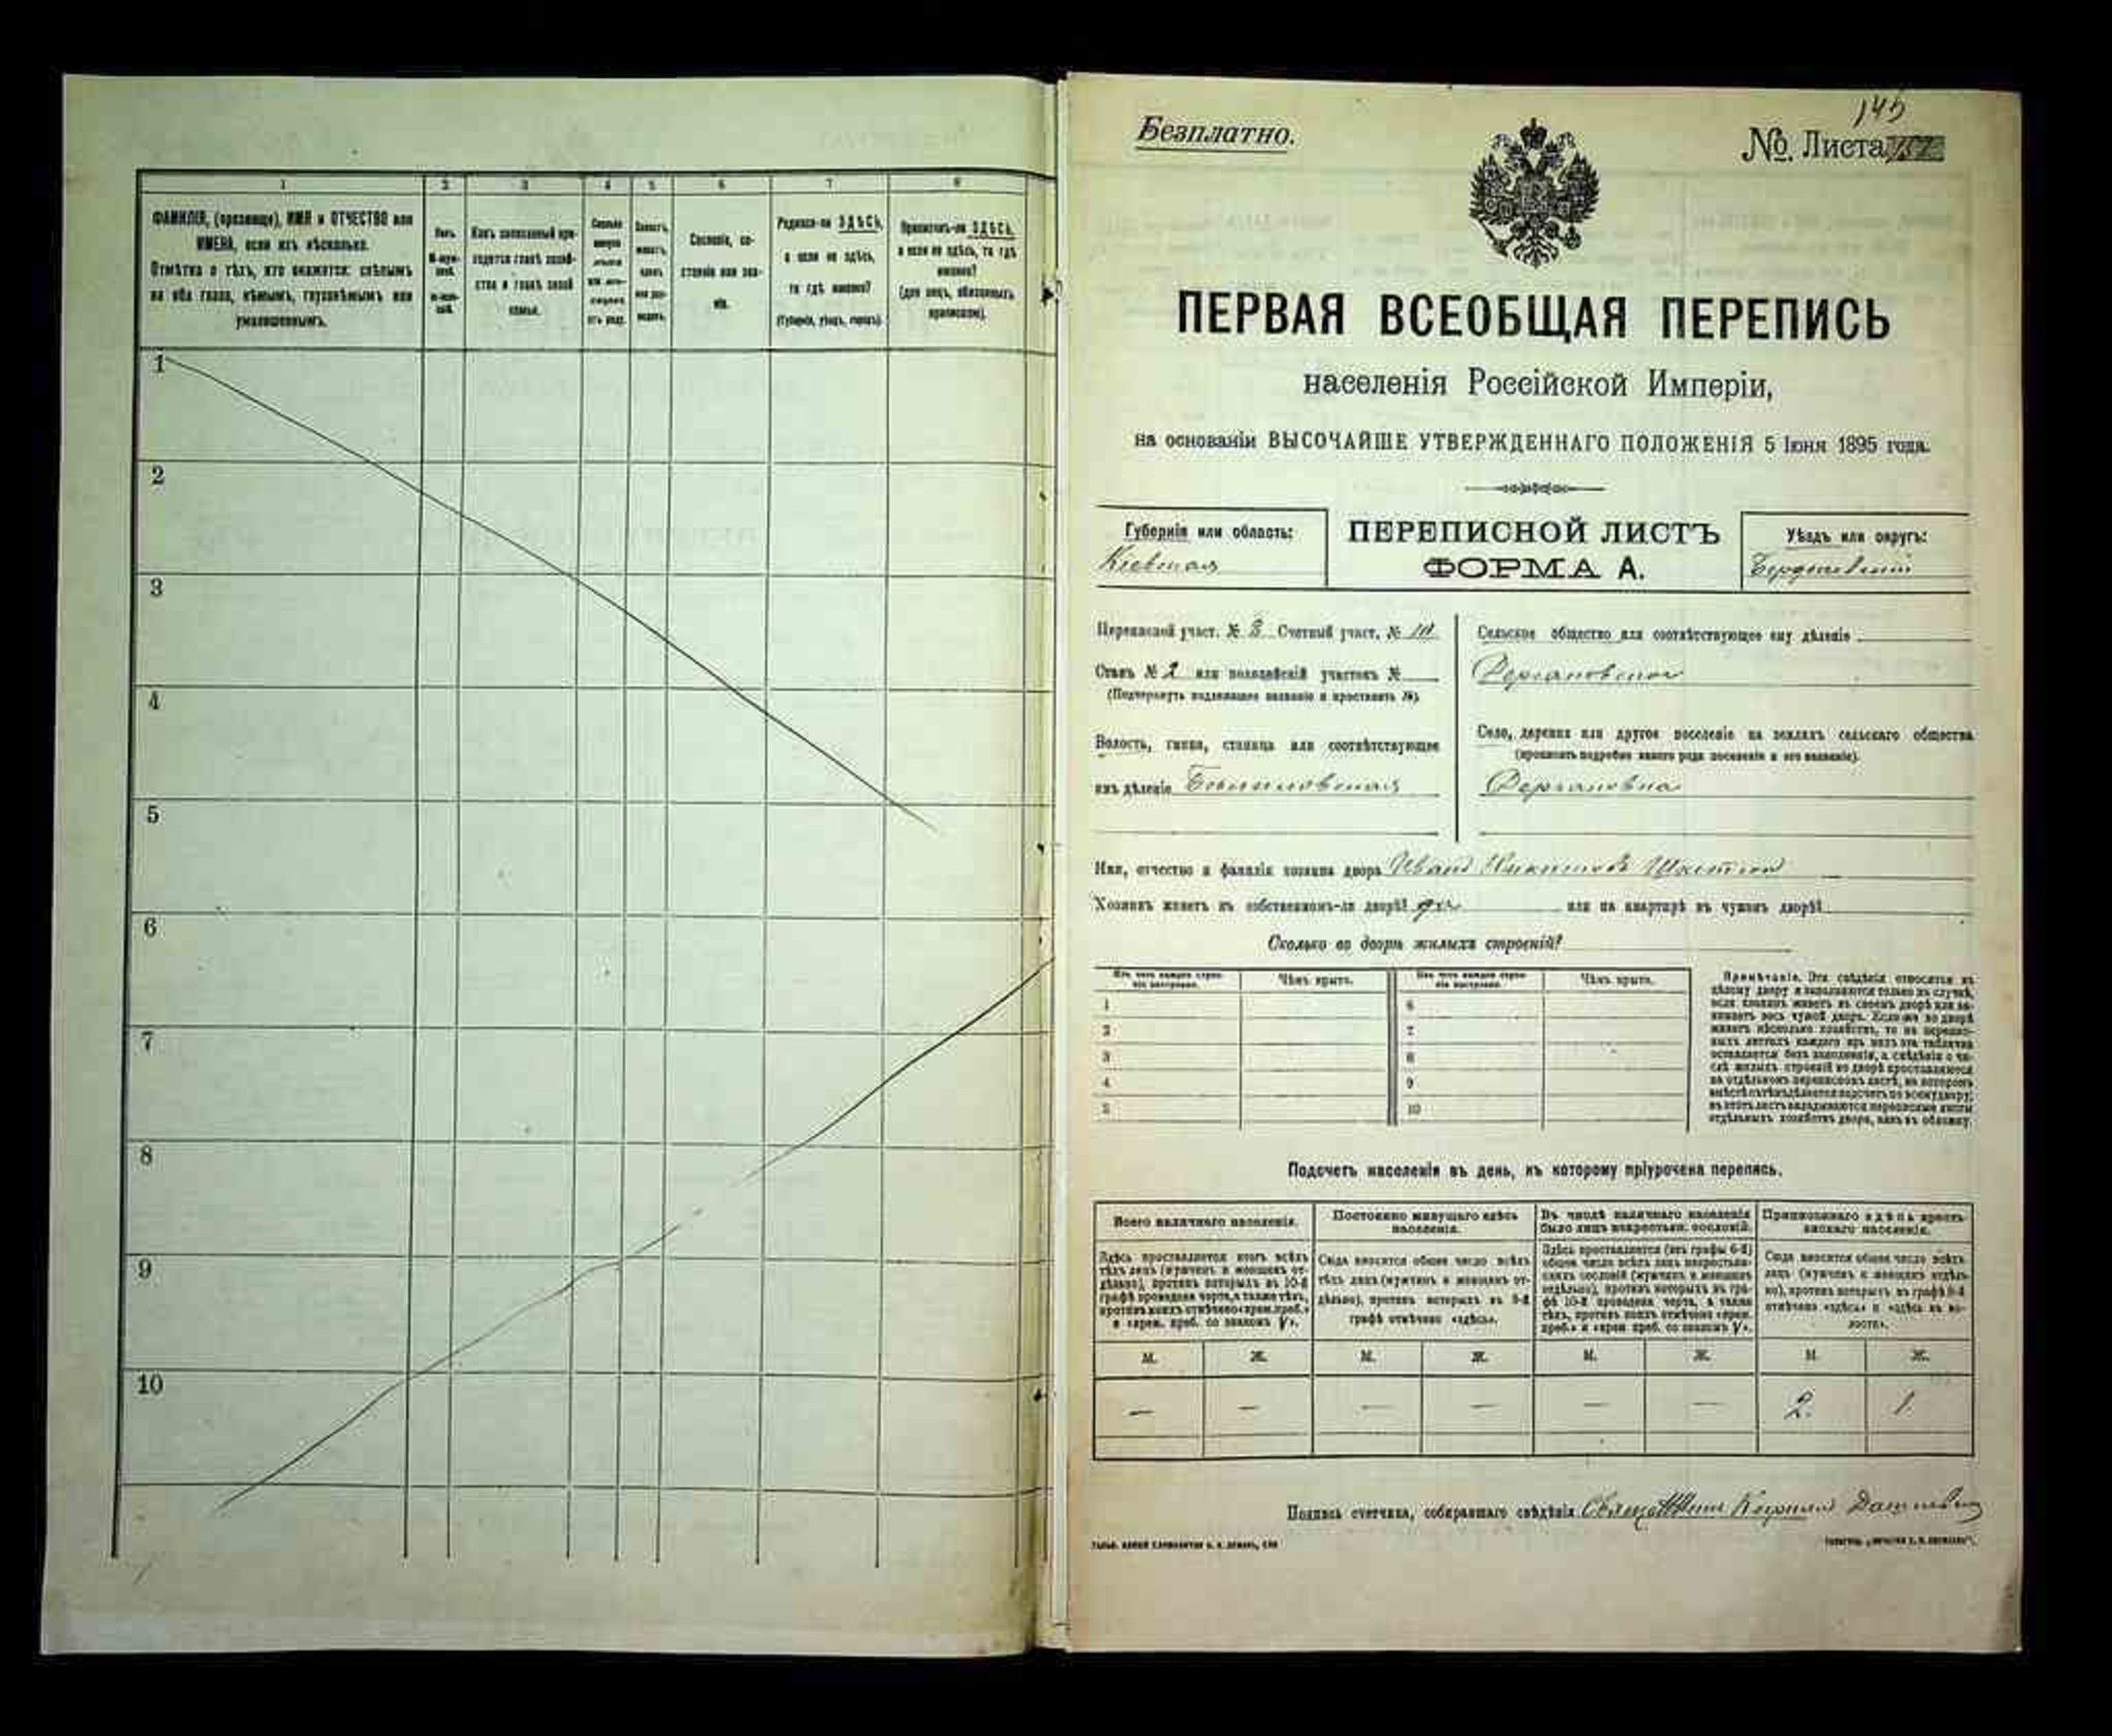 1 2 3 4 5 6 7 8
ФАМИЛІЯ, (прозвище), ИМЯ и ОТЧЕСТВО или
ИМЕНА, если ихъ нѣсколько.
Отмѣтка о тѣхъ, кто окажется: слѣпымъ
на оба глаза, нѣмымъ, глухонѣмымъ или
умалишеннымъ.
Полъ.
М-муж-
ской.
Ж-жен-
скій.
Какъ записанный при-
ходится главѣ хозяй-
ства и главѣ своей
семьи.
Сколько
минуло
лѣтъ
или мѣ-
сяцевъ
отъ роду.
Холостъ,
женатъ,
вдовъ
или раз-
веденъ.
Сословіе, со-
стояніе или зва-
ніе.
Родился-ли ЗДѢСЬ,
а если не здѣсь,
то гдѣ именно?
(Губернія, уѣздъ, городъ).
Приписанъ-ли ЗДѢСЬ,
а если не здѣсь, то гдѣ
именно?
(для лицъ, обязанныхъ
припиской).
1
2
3
4
5
6
7
8
9
10
145
Безплатно.
№ Листа
ПЕРВАЯ ВСЕОБЩАЯ ПЕРЕПИСЬ
населенія Россійской Имперіи,
на основаніи ВЫСОЧАЙШЕ УТВЕРЖДЕННАГО ПОЛОЖЕНІЯ 5 Іюня 1895 года.
Губернія или область:
Кіевская
ПЕРЕПИСНОЙ ЛИСТЪ
ФОРМА А.
Уѣздъ или округъ:
Бердичевскій
Переписной участ. № 3 Счетный участ. № 10
Станъ № 2 или полицейскій участокъ №
(Подчеркнуть надлежащее названіе и проставить №).
Волость, гмина, станица или соотвѣтствующее
имъ дѣленіе
Сельское общество или соотвѣтствующее ему дѣленіе
Село, деревня или другое поселеніе на земляхъ сельскаго общества
(прописать подробно какого рода поселеніе и его названіе).
Имя, отчество и фамилія хозяина двора Иванъ
Хозяинъ живетъ въ собственномъ-ли дворѣ? да или на квартирѣ въ чужомъ дворѣ?
Сколько во дворѣ жилыхъ строеній?
Изъ чего каждое строе-
ніе выстроено.
Чѣмъ крыто.
Изъ чего каждое строе-
ніе выстроено.
Чѣмъ крыто.
1 6
2 7
3 8
4 9
5 10
Примѣчаніе. Эти свѣдѣнія относятся къ
цѣлому двору и заполняются только въ случаѣ,
если хозяинъ живетъ въ своемъ дворѣ или за-
нимаетъ весь чужой дворъ. Если-же во дворѣ
живетъ нѣсколько хозяйствъ, то на перепис-
ныхъ листахъ каждаго изъ нихъ эта табличка
оставляется безъ заполненія, а свѣдѣнія о чи-
слѣ жилыхъ строеній во дворѣ проставляются
на отдѣльномъ переписномъ листѣ, на которомъ
вмѣстѣ съ тѣмъ дѣлается подсчетъ по всему двору;
въ этотъ листъ вкладываются переписные листы
отдѣльныхъ хозяйствъ двора, какъ въ обложку.
Подсчетъ населенія въ день, къ которому пріурочена перепись.
Всего наличнаго населенія.
Здѣсь проставляется итогъ всѣхъ
тѣхъ лицъ (мужчинъ и женщинъ от-
дѣльно), противъ которыхъ въ 10-й
графѣ проведена черта, а также тѣхъ,
противъ коихъ отмѣчено «врем. преб.»
и «врем. преб. со знакомъ V».
Постоянно живущаго здѣсь
населенія.
Сюда вносится общее число всѣхъ
тѣхъ лицъ (мужчинъ и женщинъ от-
дѣльно), противъ которыхъ въ 9-й
графѣ отмѣчено «здѣсь».
Въ числѣ наличнаго населенія
было лицъ некрестьян. сословій.
Здѣсь проставляется (изъ графы 6-й)
общее число всѣхъ лицъ некрестьян-
скихъ сословій (мужчинъ и женщинъ
отдѣльно), противъ которыхъ въ гра-
фѣ 10-й проведена черта, а также
тѣхъ, противъ коихъ отмѣчено «врем.
преб.» и «врем. преб. со знакомъ V».
Приписаннаго здѣсь кресть-
янскаго населенія.
Сюда вносится общее число всѣхъ
лицъ (мужчинъ и женщинъ отдѣль-
но), противъ которыхъ въ графѣ 8-й
отмѣчено «здѣсь» и «здѣсь въ во-
лости».
М. Ж. М. Ж. М. Ж. М. Ж.
— — — — — — 2. 1
Подпись счетчика, собиравшаго свѣдѣнія